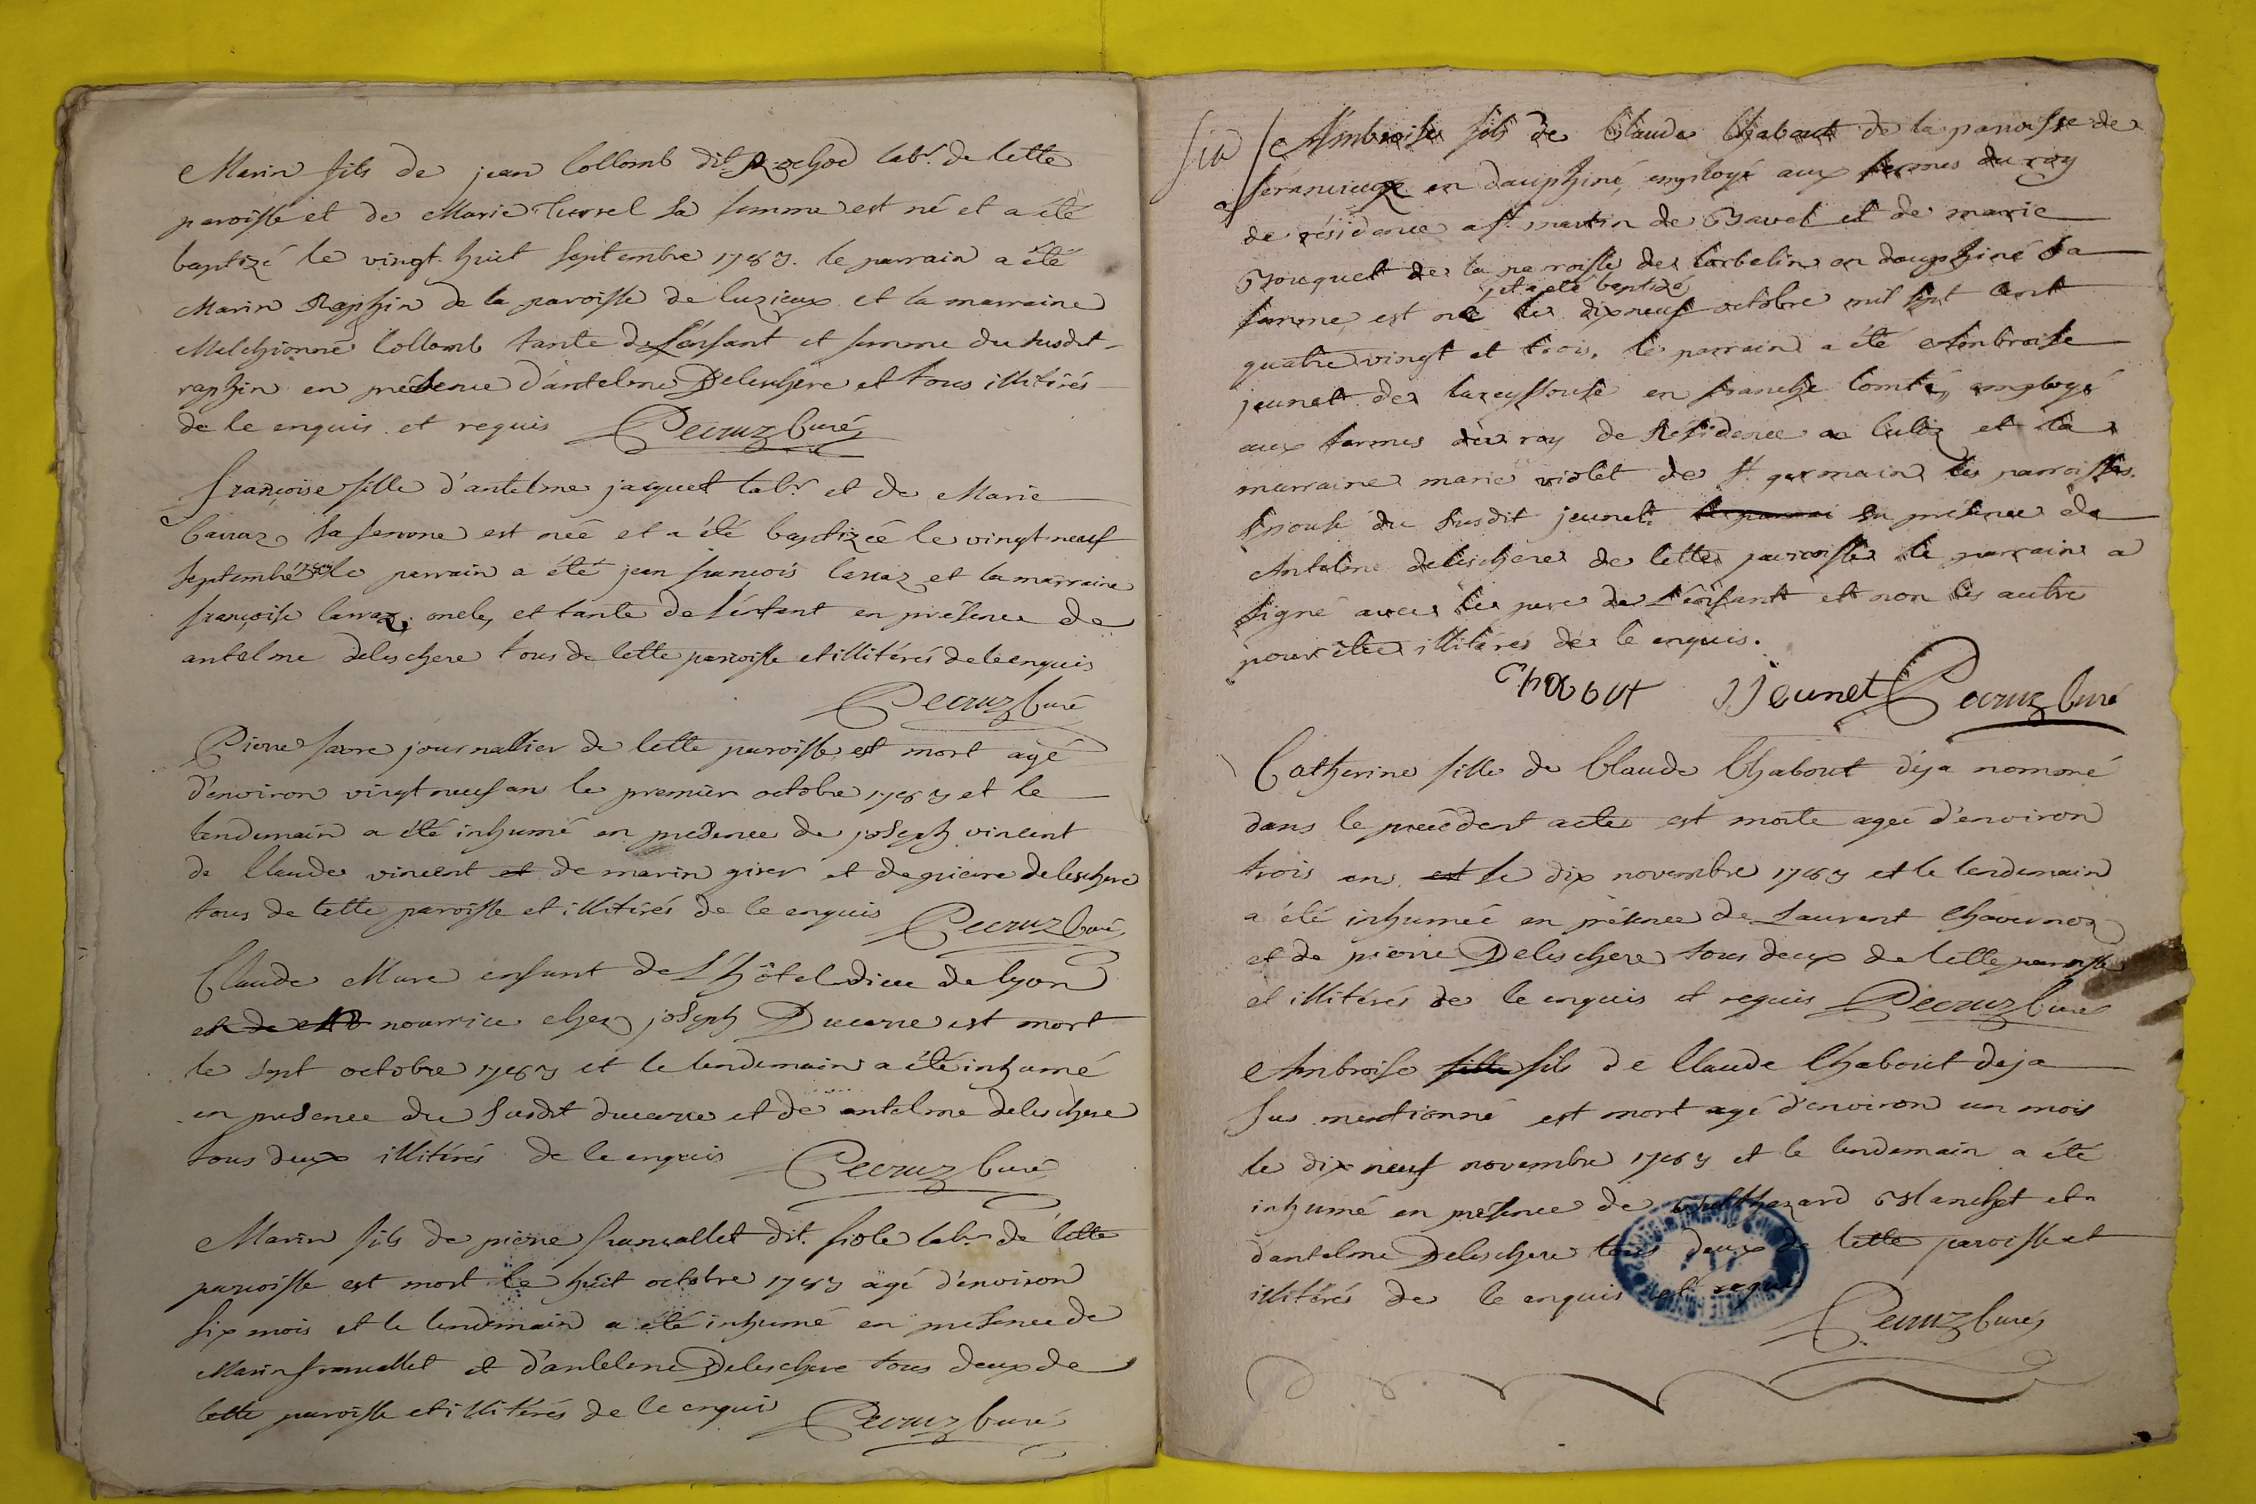 Marin fils de jean Collomb dit labr. de Cette
paroisse et de Marie sa femme est né et a été
baptizé le vingt huit septembre 1783. le parrain a été
Marin Raphin de la paroisse de luzieux et la marraine
Melchionne Collomb tante de l'énfant et femme du susdit
raphin en présence d'antelme Deleschere et tous illitérés
de ce enquis et requis Decruz Curé
françoise fille d'antelme jacquet labr. et de Marie
Carraz sa femme est née et a été baptizée le vingt neuf
septembre 1783 le parrain a été jean francois Carraz et la marraine
françoise Carraz oncle, et tante de l'énfant en présence de
antelme deleschere tous de Cette paroisse et illitérés de ce enquis
Decruz Curé
Pierre favre journallier de Cette paroisse est mort agé
d'environ vingt neuf an le premier octobre 1783 et le
lendemain a été inhumé en presence de joseph vincent
de Claude vincent et de marin giver et de pierre deleschere
tous de Cette paroisse et illitérés de ce enquis Decruz Curé
Claude Mure enfant de L'hôtel dieu de lyon
nourrice chez joseph Ducarre est mort
le sept octobre 1783 et le lendemain a été inhumé
en presence du susdit ducarre et de antelme deleschere
tous deux illitérés de ce enquis Decruz Curé
Marin fils de pierre francallet dit fiole labr. de Cette
paroisse est mort le huit octobre 1783 agé d'environ
six mois et le lendemain a été inhumé en presence de
Marin francallet et d'antelme Deleschere tous deux de
Cette paroisse et illitérés de ce enquis Decruz Curé
Ambroise fils de Claude Chabout de la paroisse de
en dauphiné, employé aux fermes du roy
de résidence a st. martin de Bavel et de marie
Bouquet de la paroisse de Corbelin en dauphiné sa
et a été baptizé
femme, est né le dixneuf octobre mil sept Cent
quatre vingt et trois. le parrain a été Ambroise
jeunet de en franche Comté, employé
aux fermes du roy de Résidence a Culoz et la
marraine marie violet de st. germain les paroisses.
Epouse du susdit jeunet. en présence de
Antelme deleschere de Cette paroisse le parrain a
signé avec le pere de L'énfant et non les autre
pour être illitérés de ce enquis.
Chabout Jeunet Decruz Curé
Catherine fille de Claude Chabout déja nommé
dans le precédent acte est morte agée d'environ
trois ans est le dix novembre 1783 et le lendemain
a été inhumée en présence de Laurent Chavernoz
et de pierre Deleschere tous deux de Cette paroisse
et illitérés de ce enquis et requis Decruz Curé
Ambroise fille fils de Claude Chabout deja
sus mentionné est mort agé d'environ un mois
le dix neuf novembre 1783 et le lendemain a été
inhumé en presence de Balthazard Blanchet et
d'antelme Deleschere tous deux de Cette paroisse et
illitérés de ce enquis et requis
Decruz Curé